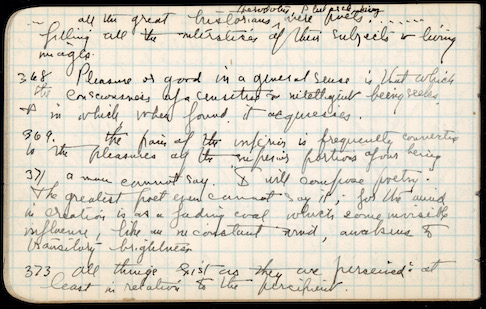 Herodotus, Plutarch, Livy
— all the great historians, were poets . . . . . . .
filling all the interstices of their subjects w living
images.
368. Pleasure or good in a general sense is that which
the consciousness of a sensitive & intelligent being seeks,
& in which, when found, it acquiesces.
369. the pain of the inferior is frequently connected
to the pleasures of the superior portions of our being
371 a man cannot say. "I will compose poetry."
The greatest poet even cannot say it; for the mind
in creation is as a fading coal which some invisible
influence, like an inconstant wind, awakens to
transitory brightness
373 all things exist as they are perceived: at
least in relation to the percipient.